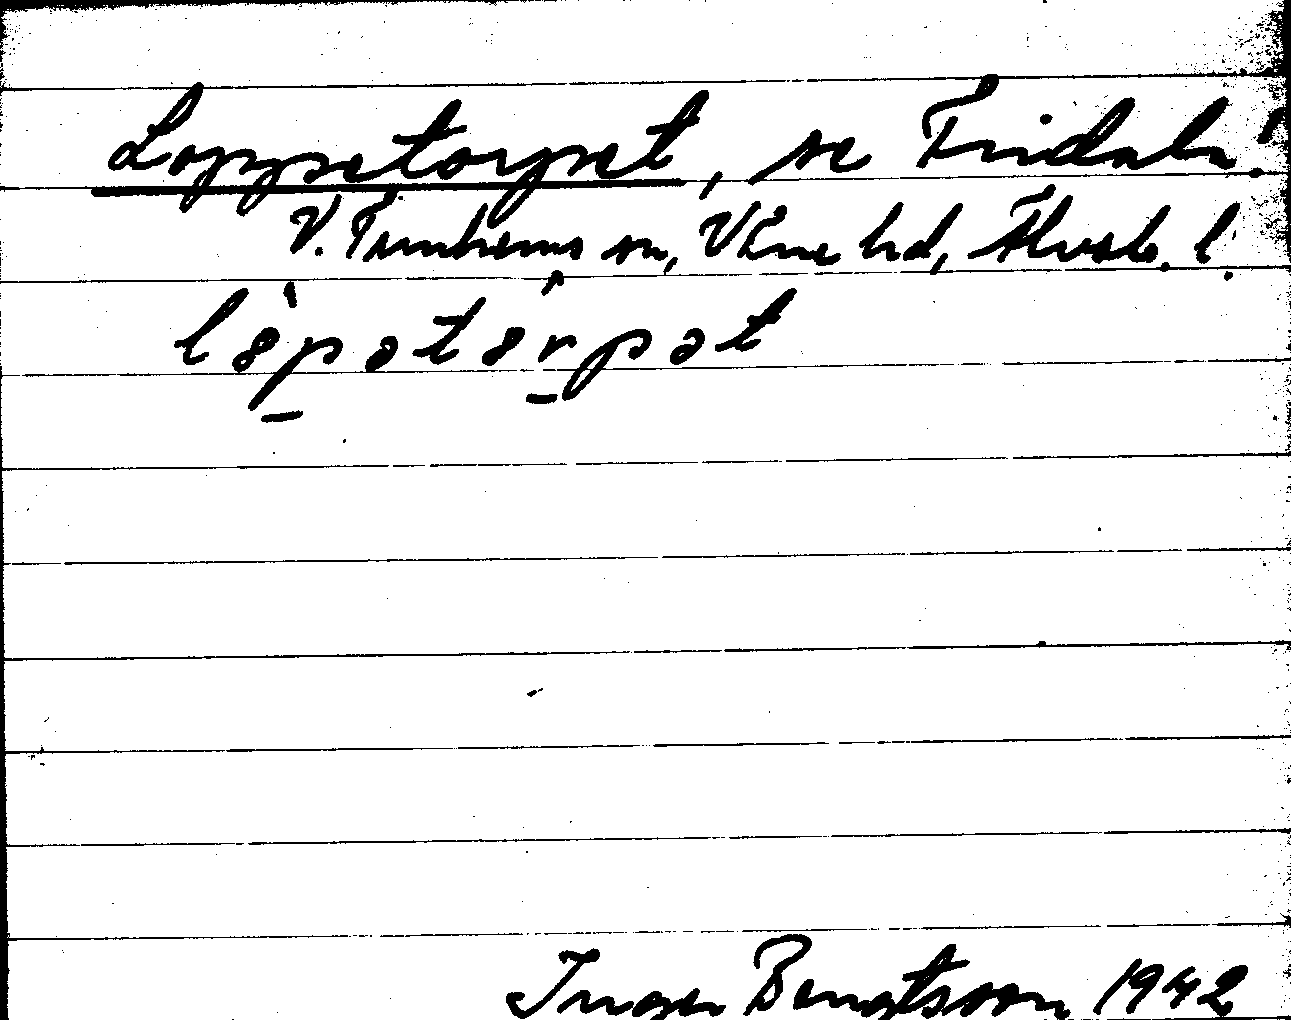 Loppetorpet, se Fridaln!
V. Tunhems sn, Väne hd, Älvsb. l.
lɞ̀pətɞ́rpət
Inger Bengtsson 1942